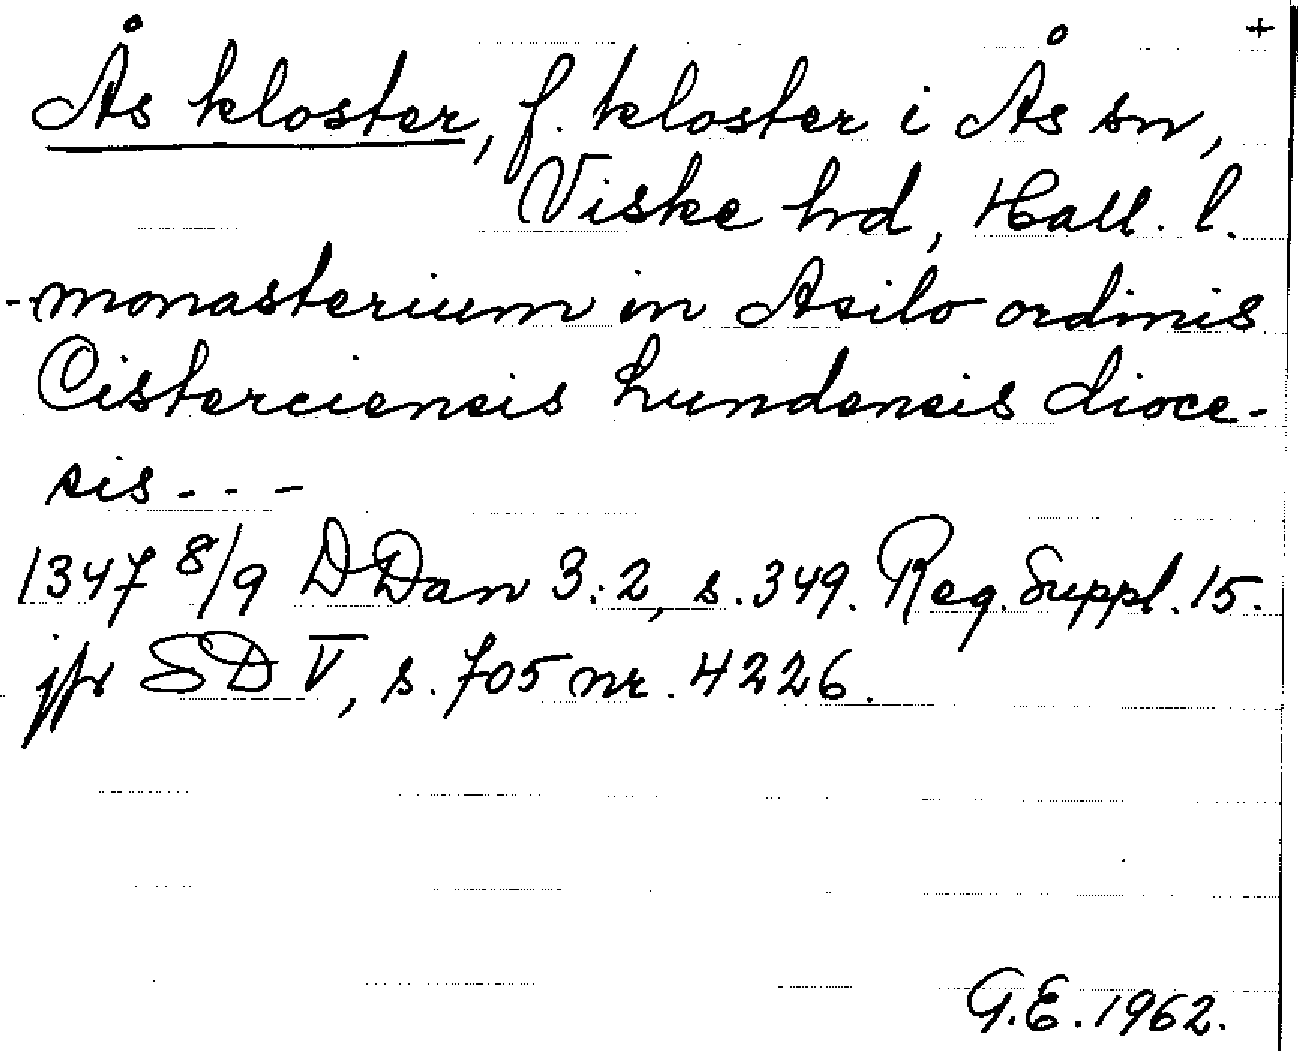 +
Ås kloster, f. kloster i Ås sn,
Viske hrd, Hall. l.
-monasterium in Asilo ordinis
Cisterciensis Lundensis dioce-
sis - - -
1347 8/9 DDan 3:2, s. 349. Reg. Suppl. 15.
jfr SD V, s. 705 nr. 4226.
G.E. 1962.